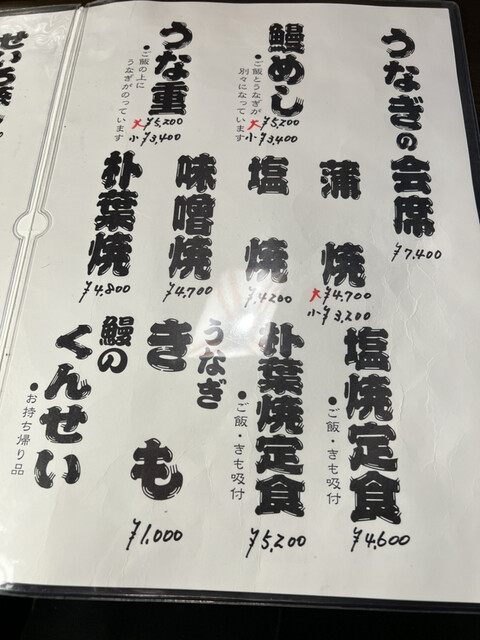 うなぎの会席
¥7,400
鰻めし
●ご飯とうなぎが
別々になっています
大 ¥5,200
小 ¥3,400
うな重
●ご飯の上に
うなぎがのっています
大 ¥5,200
小 ¥3,400
蒲焼
大 ¥4,700
小 ¥3,200
塩焼
¥4,200
味噌焼
¥4,700
朴葉焼
¥4,800
塩焼定食
●ご飯・きも吸付
¥4,600
朴葉焼定食
●ご飯・きも吸付
¥5,200
うなぎ
きも
¥1,000
鰻の
くんせい
●お持ち帰り品
せいろ蒸